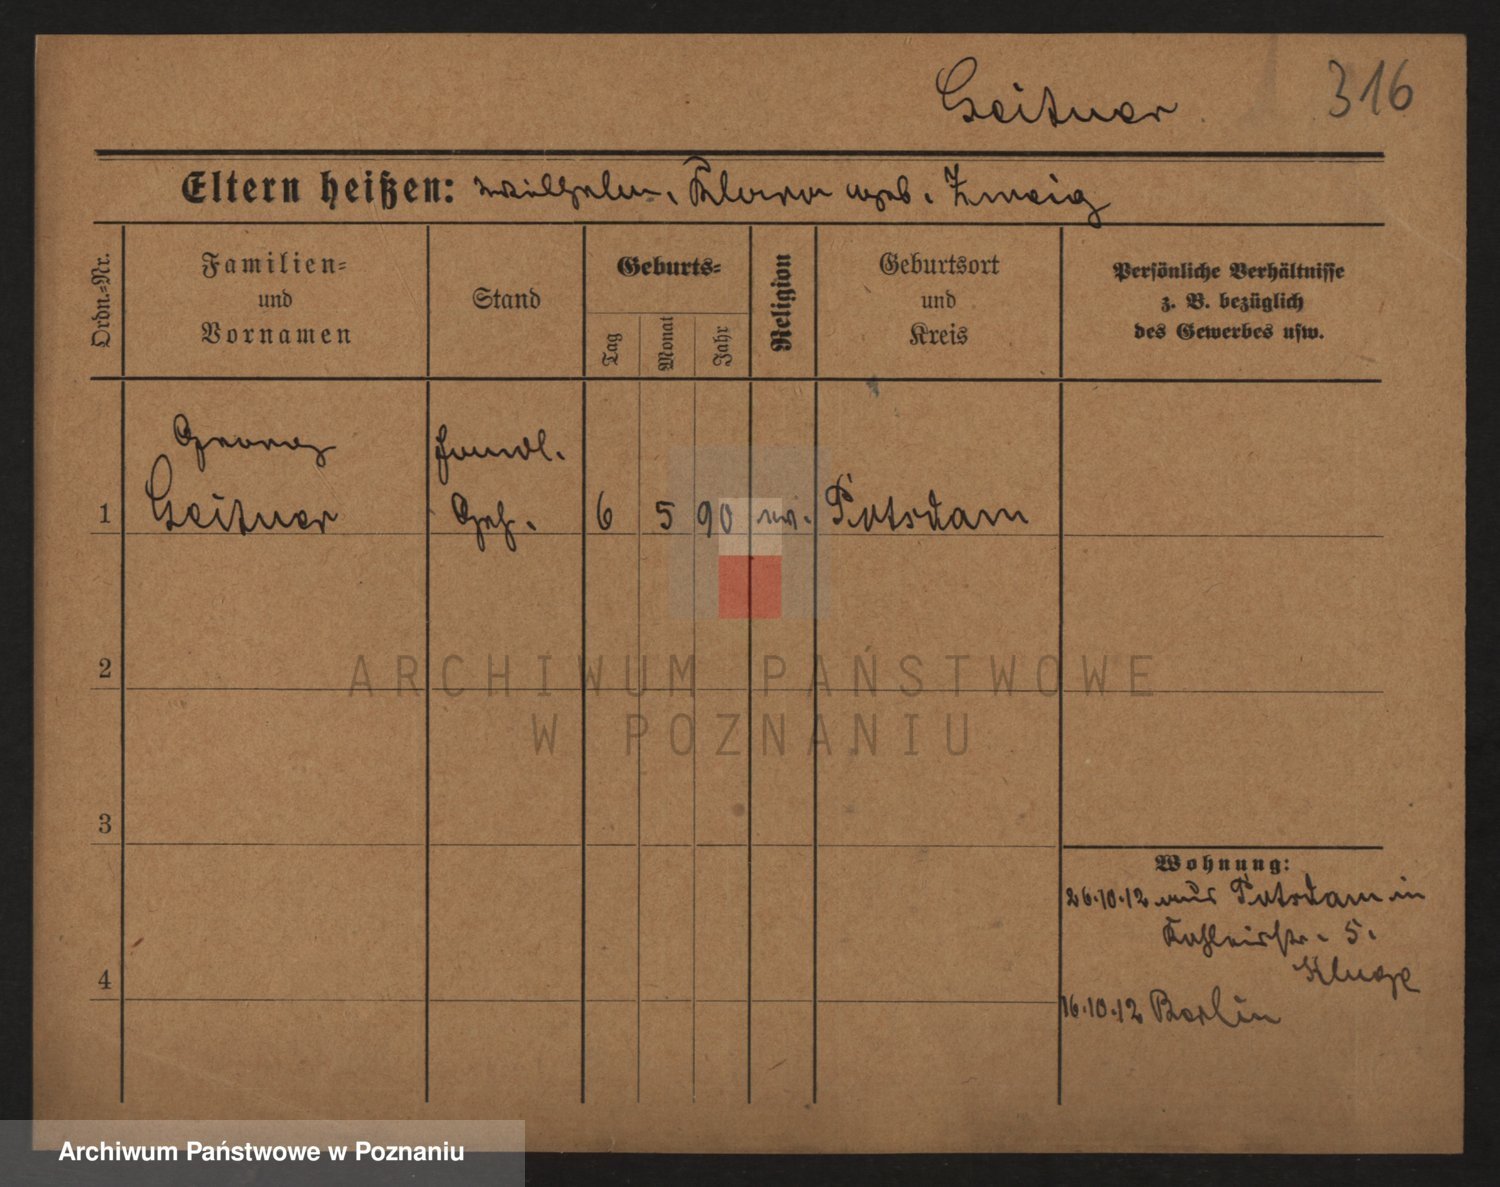 Geitner 316
Eltern heißen: Wilhelm, Klara geb. Zweig
Ordn.-Nr.
Familien-
und
Vornamen
Stand
Geburts-
Tag
Monat
Jahr
Religion
Geburtsort
und
Kreis
Persönliche Verhältnisse
z. B. bezüglich
des Gewerbes usw.
Georg Handl.
1 Geitner Geh. 6 5 90 ev. Potsdam
2
ARCHIWUM PAŃSTWOWE
W POZNANIU
3
Wohnung:
26.10.12 aus Potsdam in
5.
Kluge
4
16.10.12 Berlin
Archiwum Państwowe w Poznaniu